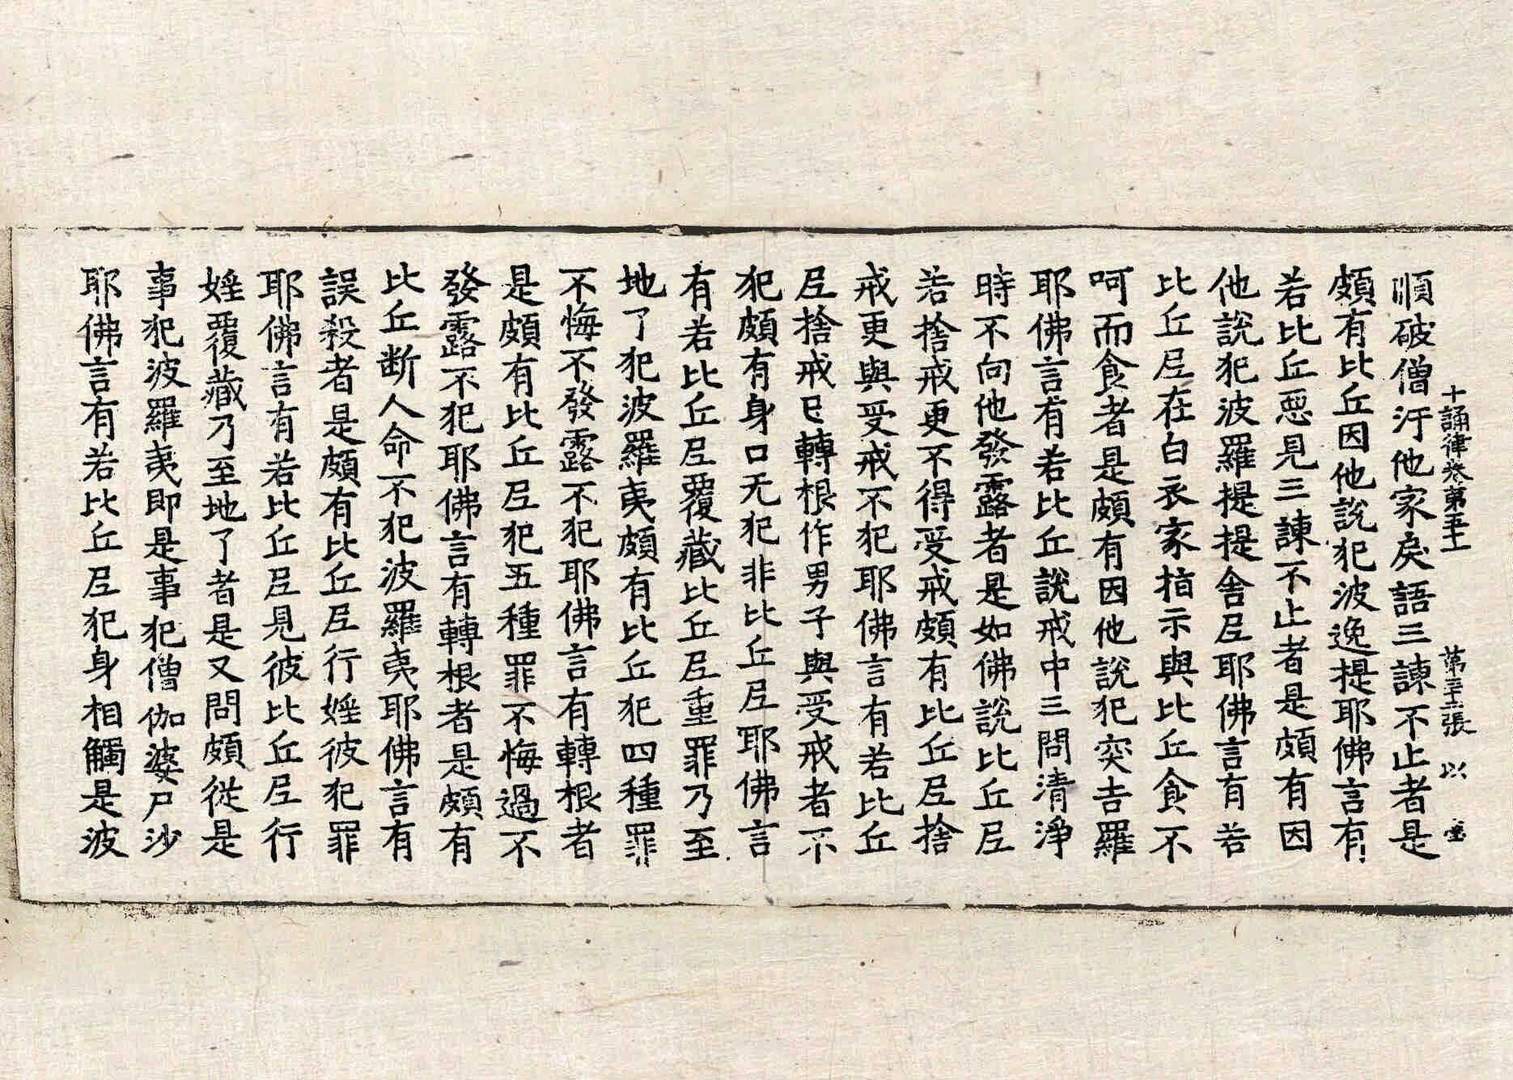 十誦律卷第五十一 第三十二張 以
順破僧汙他家戾語三諫不止者是
頗有比丘因他說犯波逸提耶佛言有
若比丘惡見三諫不止者是頗有因
他說犯波羅提提舍尼耶佛言有若
比丘尼在白衣家指示與比丘食不
呵而食者是頗有因他說犯突吉羅
耶佛言有若比丘說戒中三問清淨
時不向他發露者是如佛說比丘尼
若捨戒更不得受戒頗有比丘尼捨
戒更與受戒不犯耶佛言有若比丘
尼捨戒已轉根作男子與受戒者不
犯頗有身口无犯非比丘尼耶佛言
有若比丘尼覆藏比丘尼重罪乃至
地了犯波羅夷頗有比丘犯四種罪
不悔不發露不犯耶佛言有轉根者
是頗有比丘尼犯五種罪不悔過不
發露不犯耶佛言有轉根者是頗有
比丘断人命不犯波羅夷耶佛言有
誤殺者是頗有比丘尼行婬彼犯罪
耶佛言有若比丘尼見彼比丘尼行
婬覆藏乃至地了者是又問頗從是
事犯波羅夷即是事犯僧伽婆尸沙
耶佛言有若比丘尼犯身相觸是波